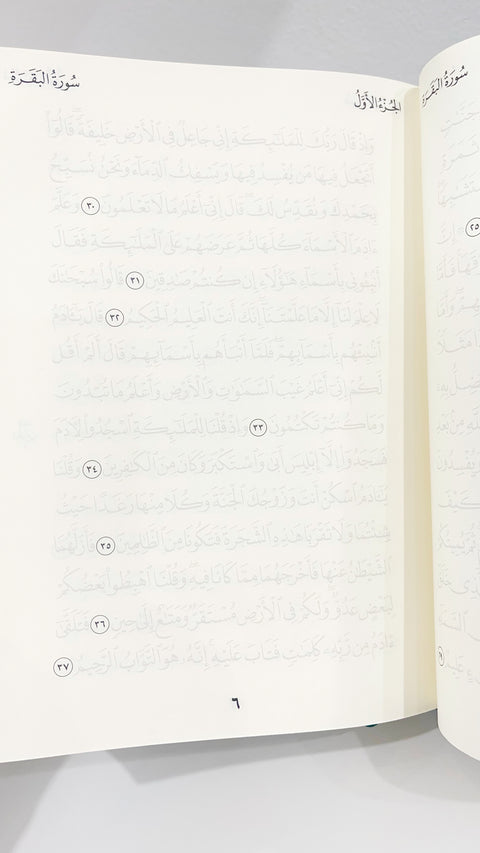 سُورَةُ البَقَرَةِ
الجُزْءُ الأَوَّلُ
وَإِذْ قَالَ رَبُّكَ لِلْمَلَٰٓئِكَةِ إِنِّى جَاعِلٌ فِى ٱلْأَرْضِ خَلِيفَةً ۖ قَالُوٓا۟
أَتَجْعَلُ فِيهَا مَن يُفْسِدُ فِيهَا وَيَسْفِكُ ٱلدِّمَآءَ وَنَحْنُ نُسَبِّحُ
بِحَمْدِكَ وَنُقَدِّسُ لَكَ ۖ قَالَ إِنِّىٓ أَعْلَمُ مَا لَا تَعْلَمُونَ ٣٠ وَعَلَّمَ
ءَادَمَ ٱلْأَسْمَآءَ كُلَّهَا ثُمَّ عَرَضَهُمْ عَلَى ٱلْمَلَٰٓئِكَةِ فَقَالَ
أَنۢبِـُٔونِى بِأَسْمَآءِ هَٰٓؤُلَآءِ إِن كُنتُمْ صَٰدِقِينَ ٣١ قَالُوا۟ سُبْحَٰنَكَ
لَا عِلْمَ لَنَآ إِلَّا مَا عَلَّمْتَنَآ ۖ إِنَّكَ أَنتَ ٱلْعَلِيمُ ٱلْحَكِيمُ ٣٢ قَالَ يَٰٓـَٔادَمُ
أَنۢبِئْهُم بِأَسْمَآئِهِمْ ۖ فَلَمَّآ أَنۢبَأَهُم بِأَسْمَآئِهِمْ قَالَ أَلَمْ أَقُل
لَّكُمْ إِنِّىٓ أَعْلَمُ غَيْبَ ٱلسَّمَٰوَٰتِ وَٱلْأَرْضِ وَأَعْلَمُ مَا تُبْدُونَ
وَمَا كُنتُمْ تَكْتُمُونَ ٣٣ وَإِذْ قُلْنَا لِلْمَلَٰٓئِكَةِ ٱسْجُدُوا۟ لِـَٔادَمَ
فَسَجَدُوٓا۟ إِلَّآ إِبْلِيسَ أَبَىٰ وَٱسْتَكْبَرَ وَكَانَ مِنَ ٱلْكَٰفِرِينَ ٣٤ وَقُلْنَا
يَٰٓـَٔادَمُ ٱسْكُنْ أَنتَ وَزَوْجُكَ ٱلْجَنَّةَ وَكُلَا مِنْهَا رَغَدًا حَيْثُ
شِئْتُمَا وَلَا تَقْرَبَا هَٰذِهِ ٱلشَّجَرَةَ فَتَكُونَا مِنَ ٱلظَّٰلِمِينَ ٣٥ فَأَزَلَّهُمَا
ٱلشَّيْطَٰنُ عَنْهَا فَأَخْرَجَهُمَا مِمَّا كَانَا فِيهِ ۖ وَقُلْنَا ٱهْبِطُوا۟ بَعْضُكُمْ
لِبَعْضٍ عَدُوٌّ ۖ وَلَكُمْ فِى ٱلْأَرْضِ مُسْتَقَرٌّ وَمَتَٰعٌ إِلَىٰ حِينٍ ٣٦ فَتَلَقَّىٰٓ
ءَادَمُ مِن رَّبِّهِۦ كَلِمَٰتٍ فَتَابَ عَلَيْهِ ۚ إِنَّهُۥ هُوَ ٱلتَّوَّابُ ٱلرَّحِيمُ ٣٧
٦
سُورَةُ البَقَرَةِ
٢٥